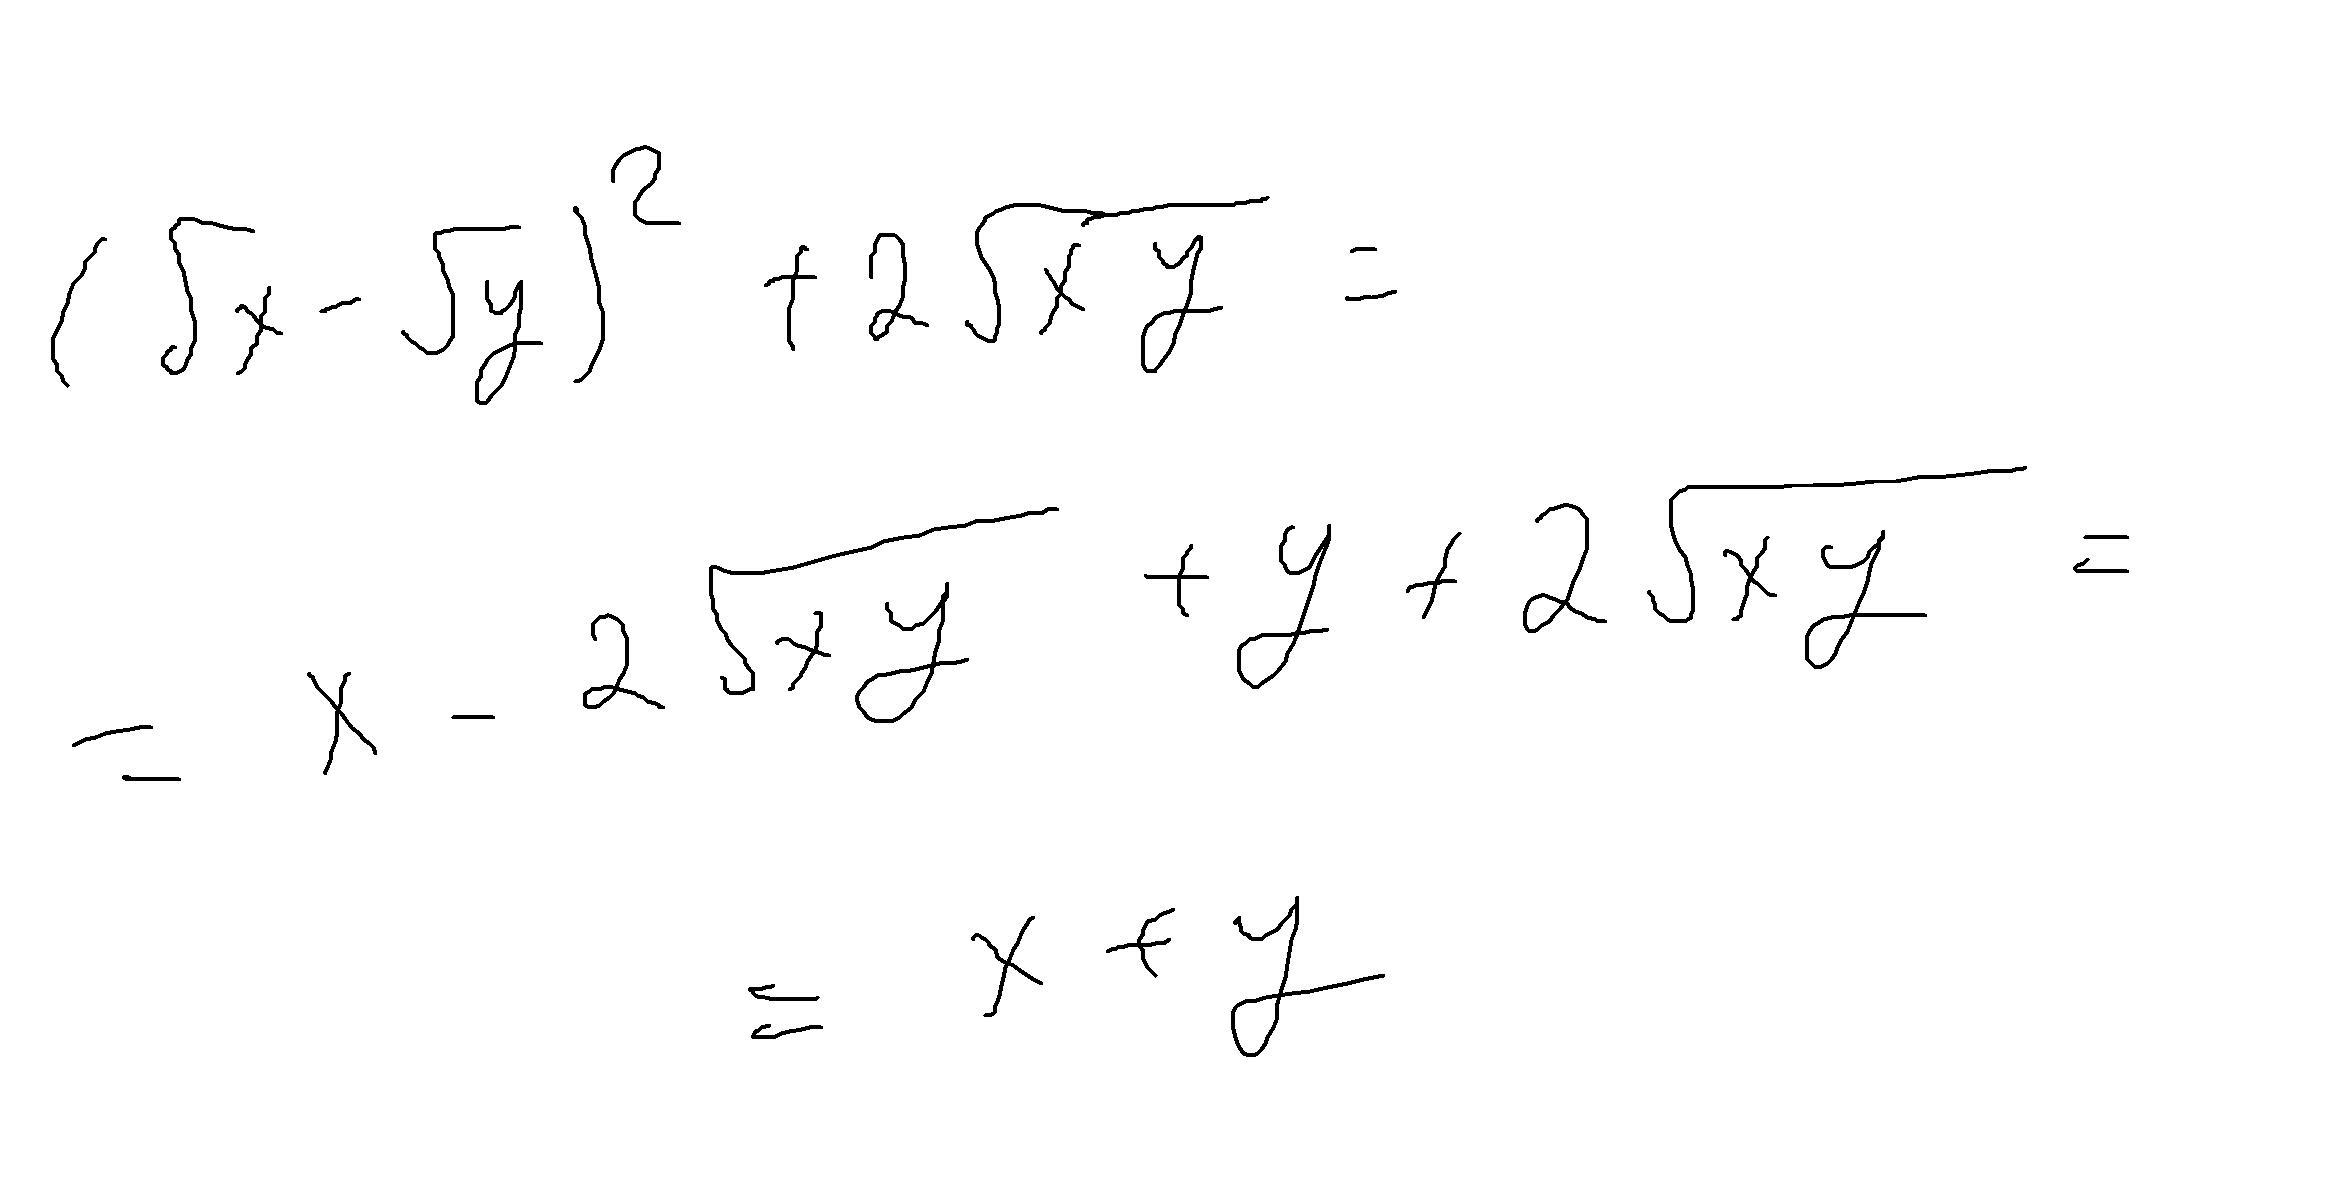 (√x - √y)² + 2√xy =
= x - 2√xy + y + 2√xy =
= x + y